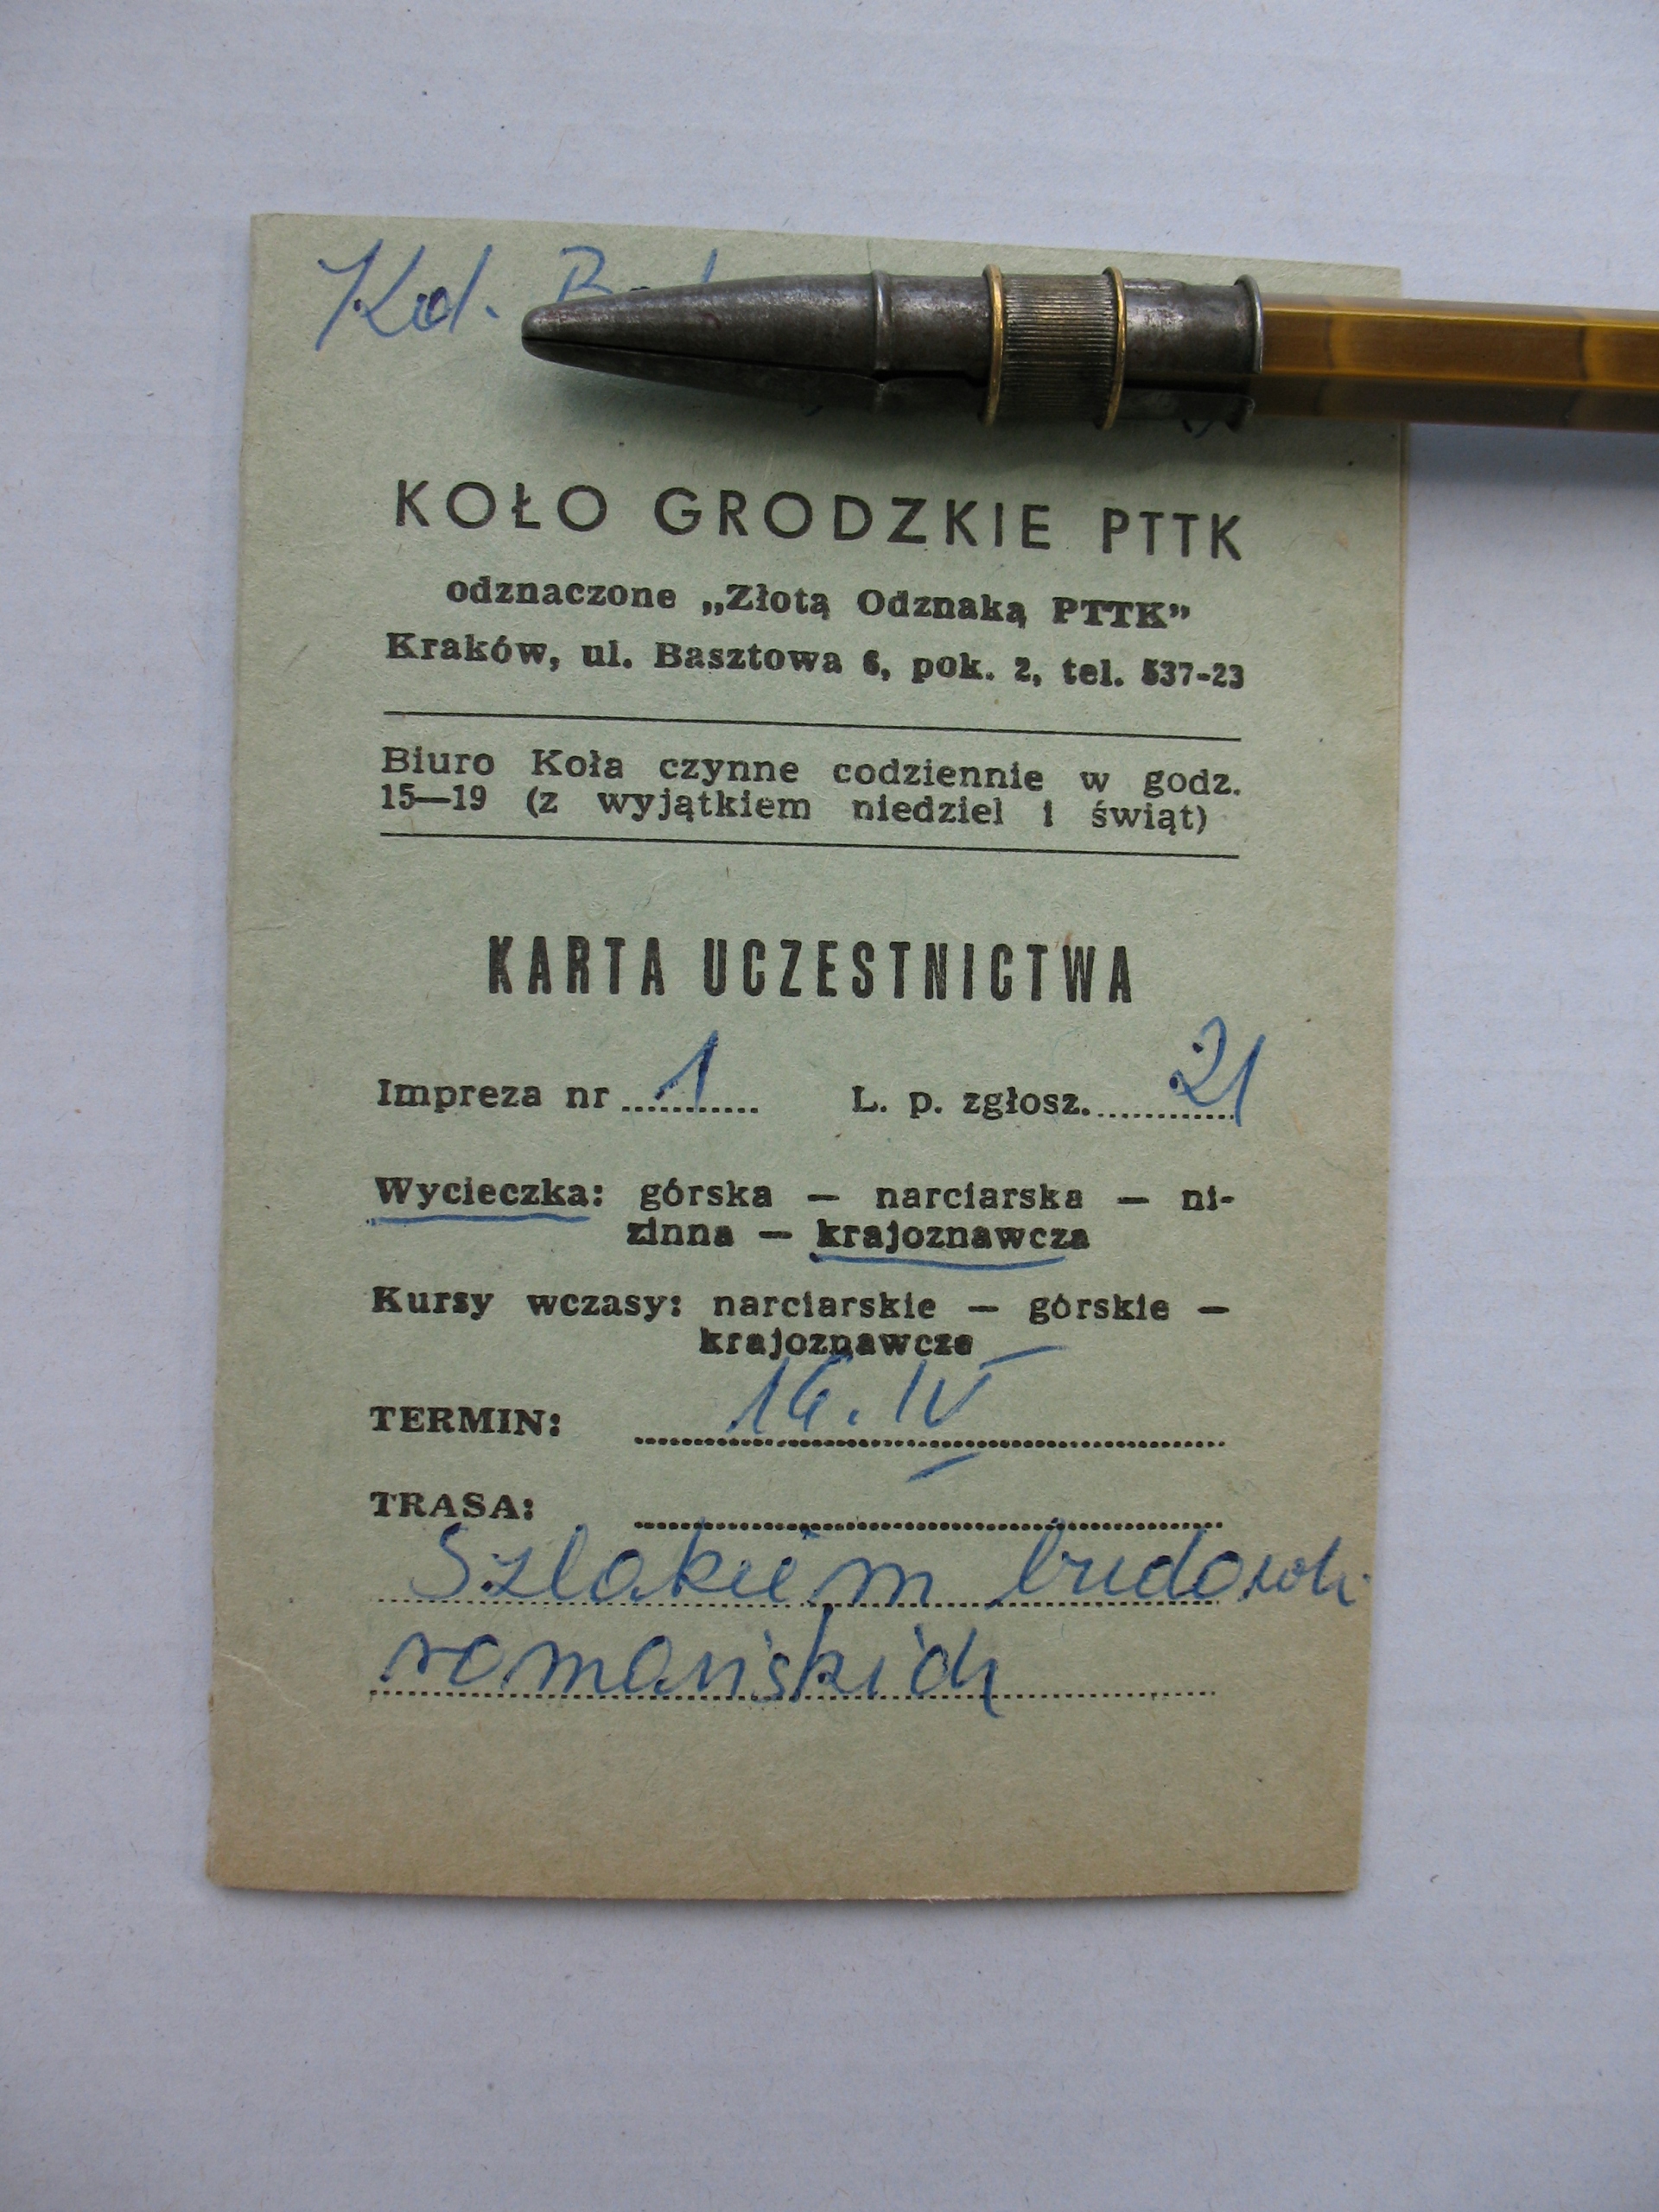 Kol.
KOŁO GRODZKIE PTTK
odznaczone „Złotą Odznaką PTTK”
Kraków, ul. Basztowa 6, pok. 2, tel. 537-23
Biuro Koła czynne codziennie w godz.
15—19 (z wyjątkiem niedziel i świąt)
KARTA UCZESTNICTWA
Impreza nr 1 L. p. zgłosz. 21
Wycieczka: górska — narciarska — ni-
zinna — krajoznawcza
Kursy wczasy: narciarskie — górskie —
krajoznawcze
TERMIN: 16. IV
TRASA:
Szlakiem budowli
romańskich